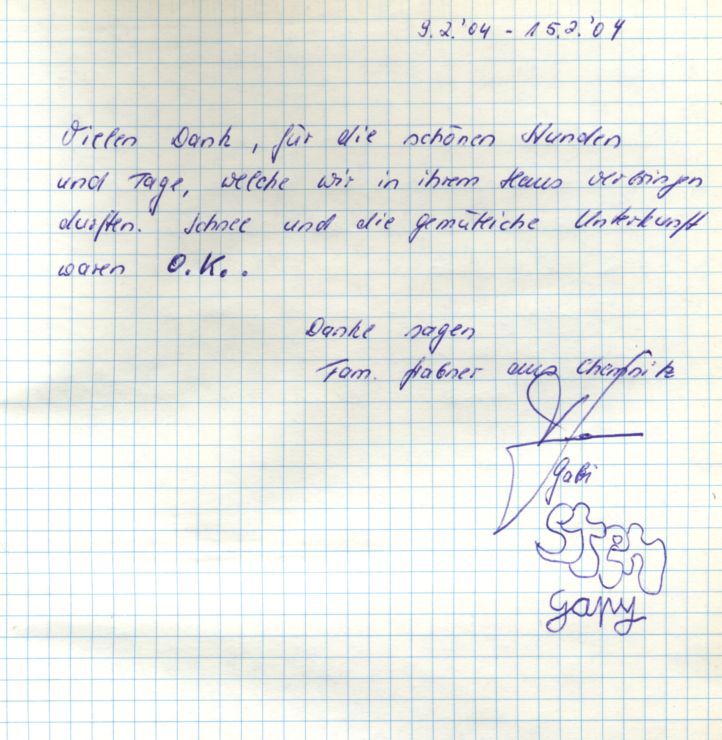 9.2.'04 - 15.2.'04
Vielen Dank, für die schönen Stunden
und Tage, welche wir in ihrem Haus verbringen
durften. Schnee und die gemütliche Unterkunft
waren O.K..
Danke sagen
Fam. Habner aus Chemnitz
Gabi
gapy